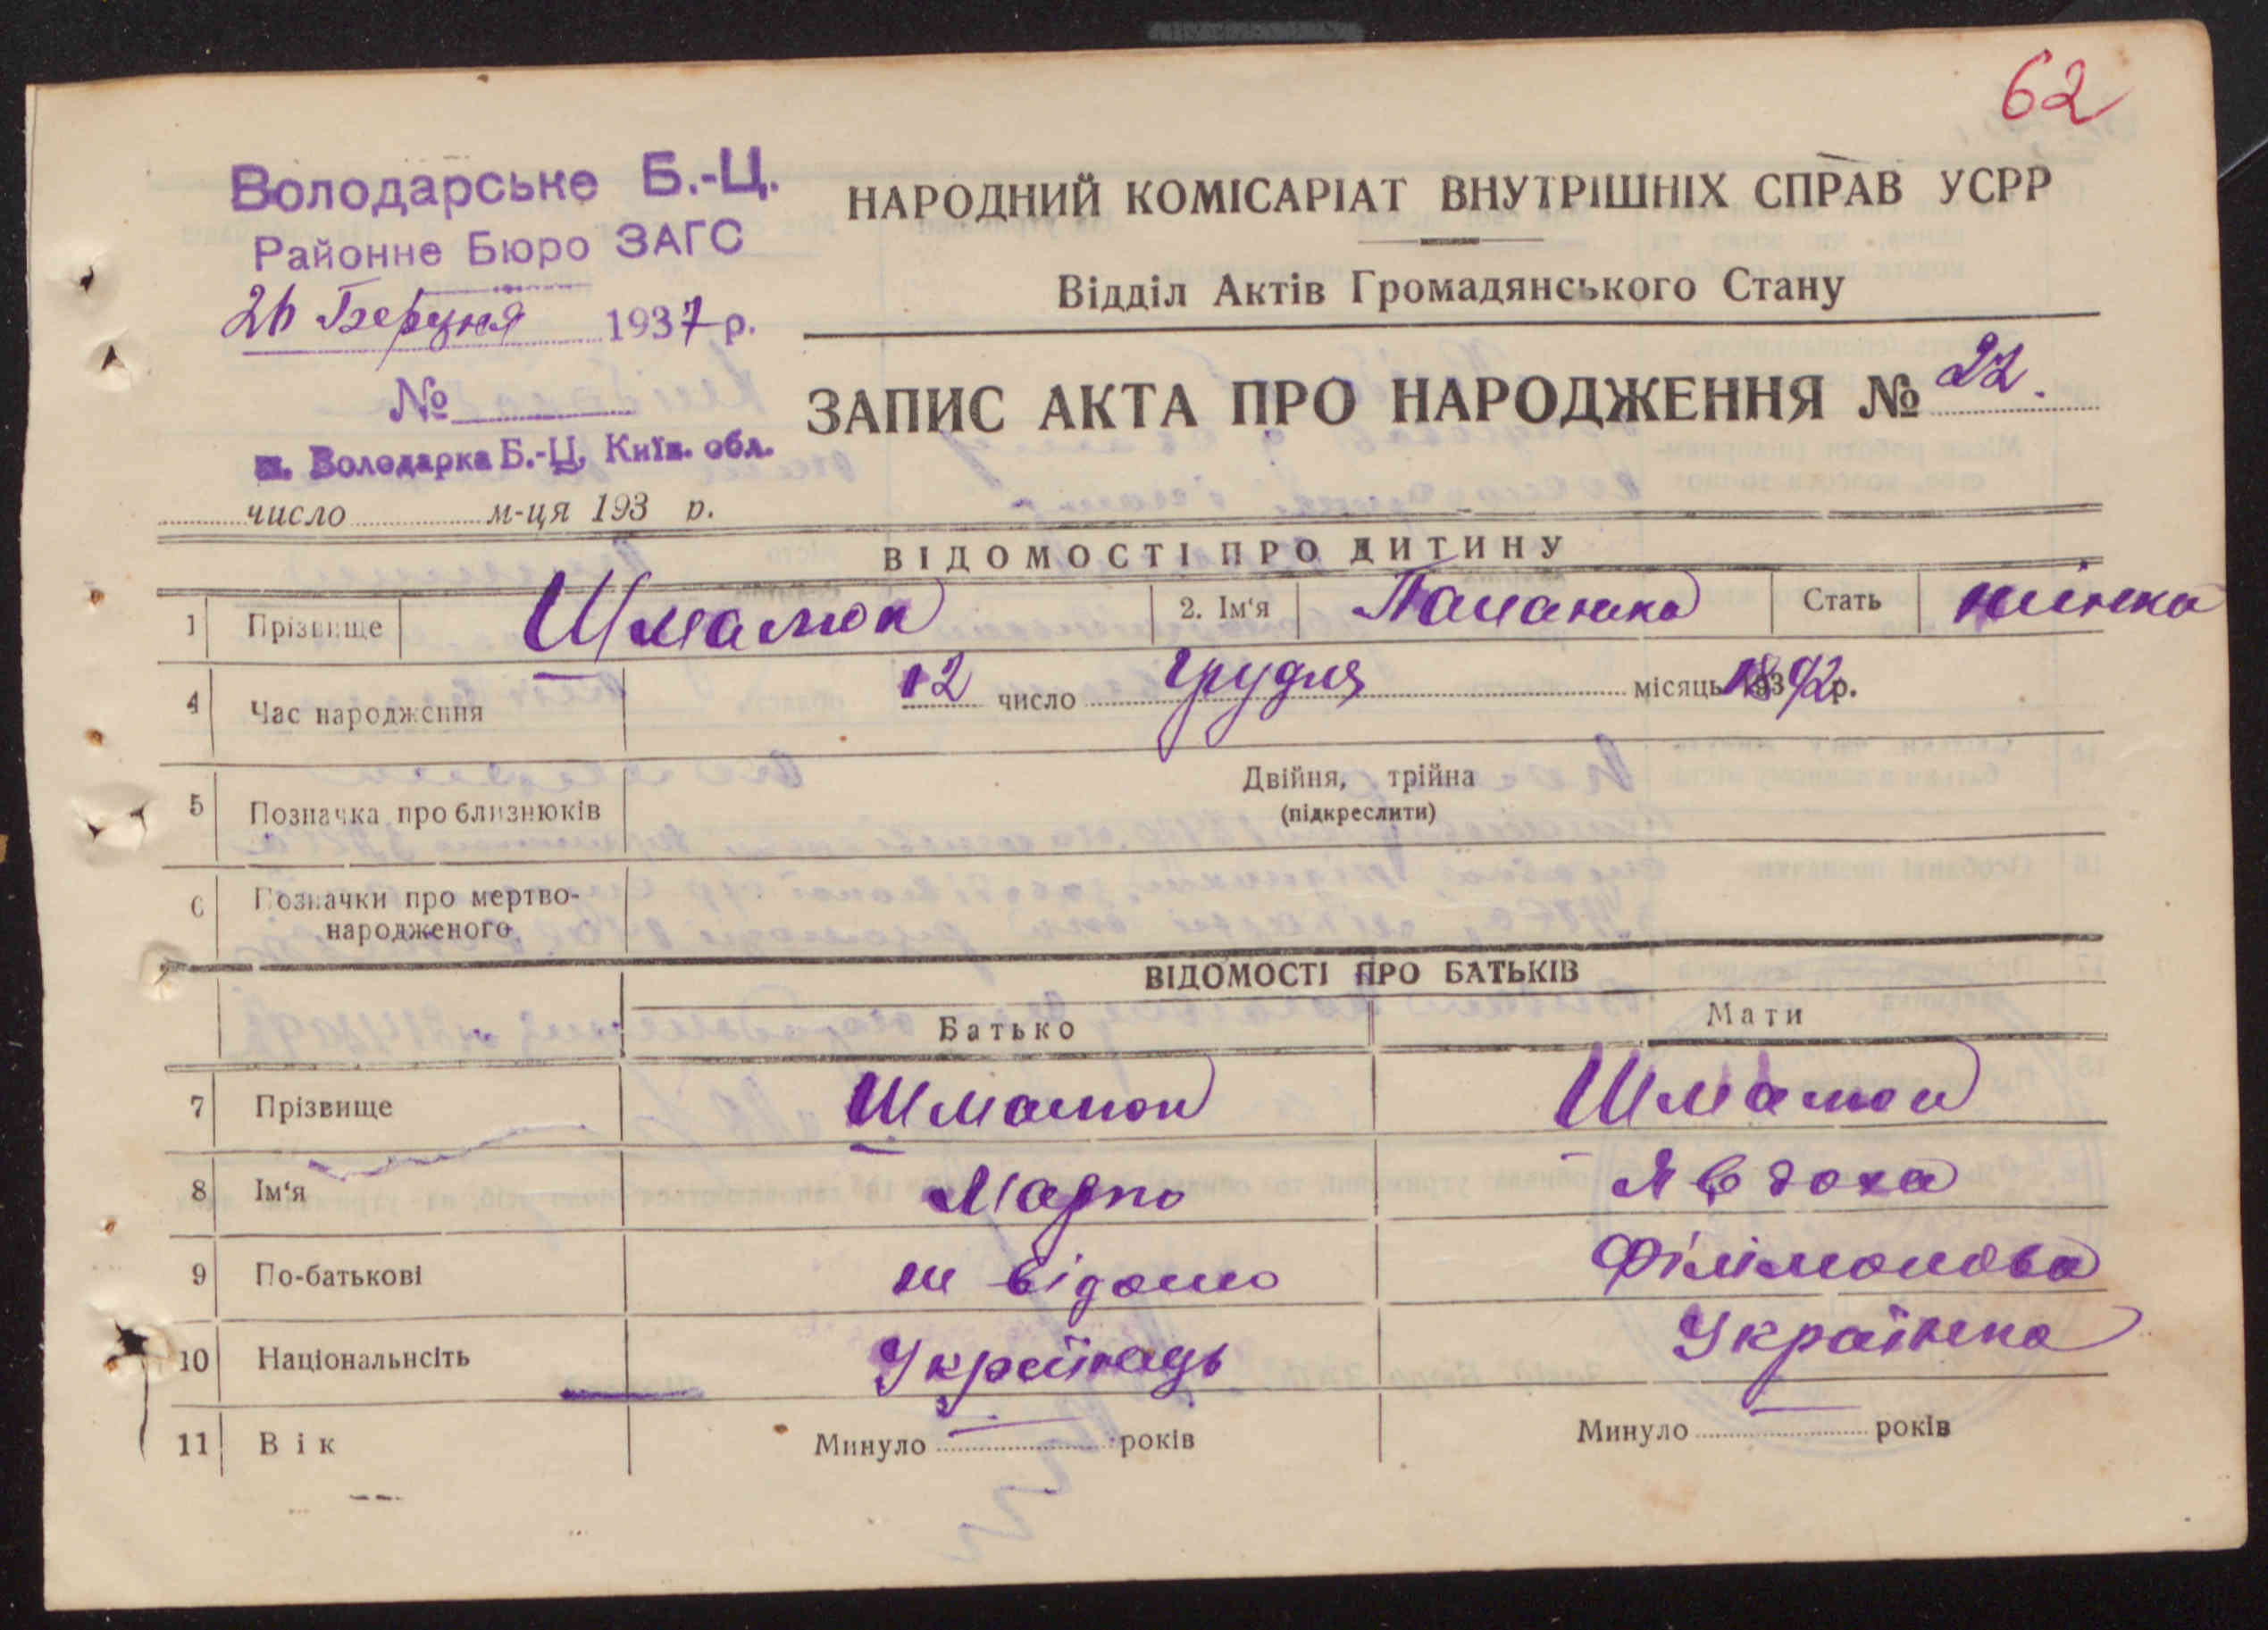 62
Володарське Б.-Ц.
Районне Бюро ЗАГС
26 Березня 1937 р.
№
м. Володарка Б.-Ц. Київ. обл.
число м-ця 193 р.
НАРОДНИЙ КОМІСАРІАТ ВНУТРІШНІХ СПРАВ УСРР
Відділ Актів Громадянського Стану
ЗАПИС АКТА ПРО НАРОДЖЕННЯ № 22.
ВІДОМОСТІ ПРО ДИТИНУ
1 Прізвище Шмалюк 2. Ім'я Палажка Стать жінка
4 Час народження 12 число грудня місяць 1892 р.
5 Позначка про близнюків Двійня, трійна
(підкреслити)
6 Позначки про мертво-
народженого
ВІДОМОСТІ ПРО БАТЬКІВ
Батько Мати
7 Прізвище Шмалюк Шмалюк
8 Ім'я Марко Явдоха
9 По-батькові не відомо Філімонова
10 Національнсіть Українець Українка
11 Вік Минуло років Минуло років